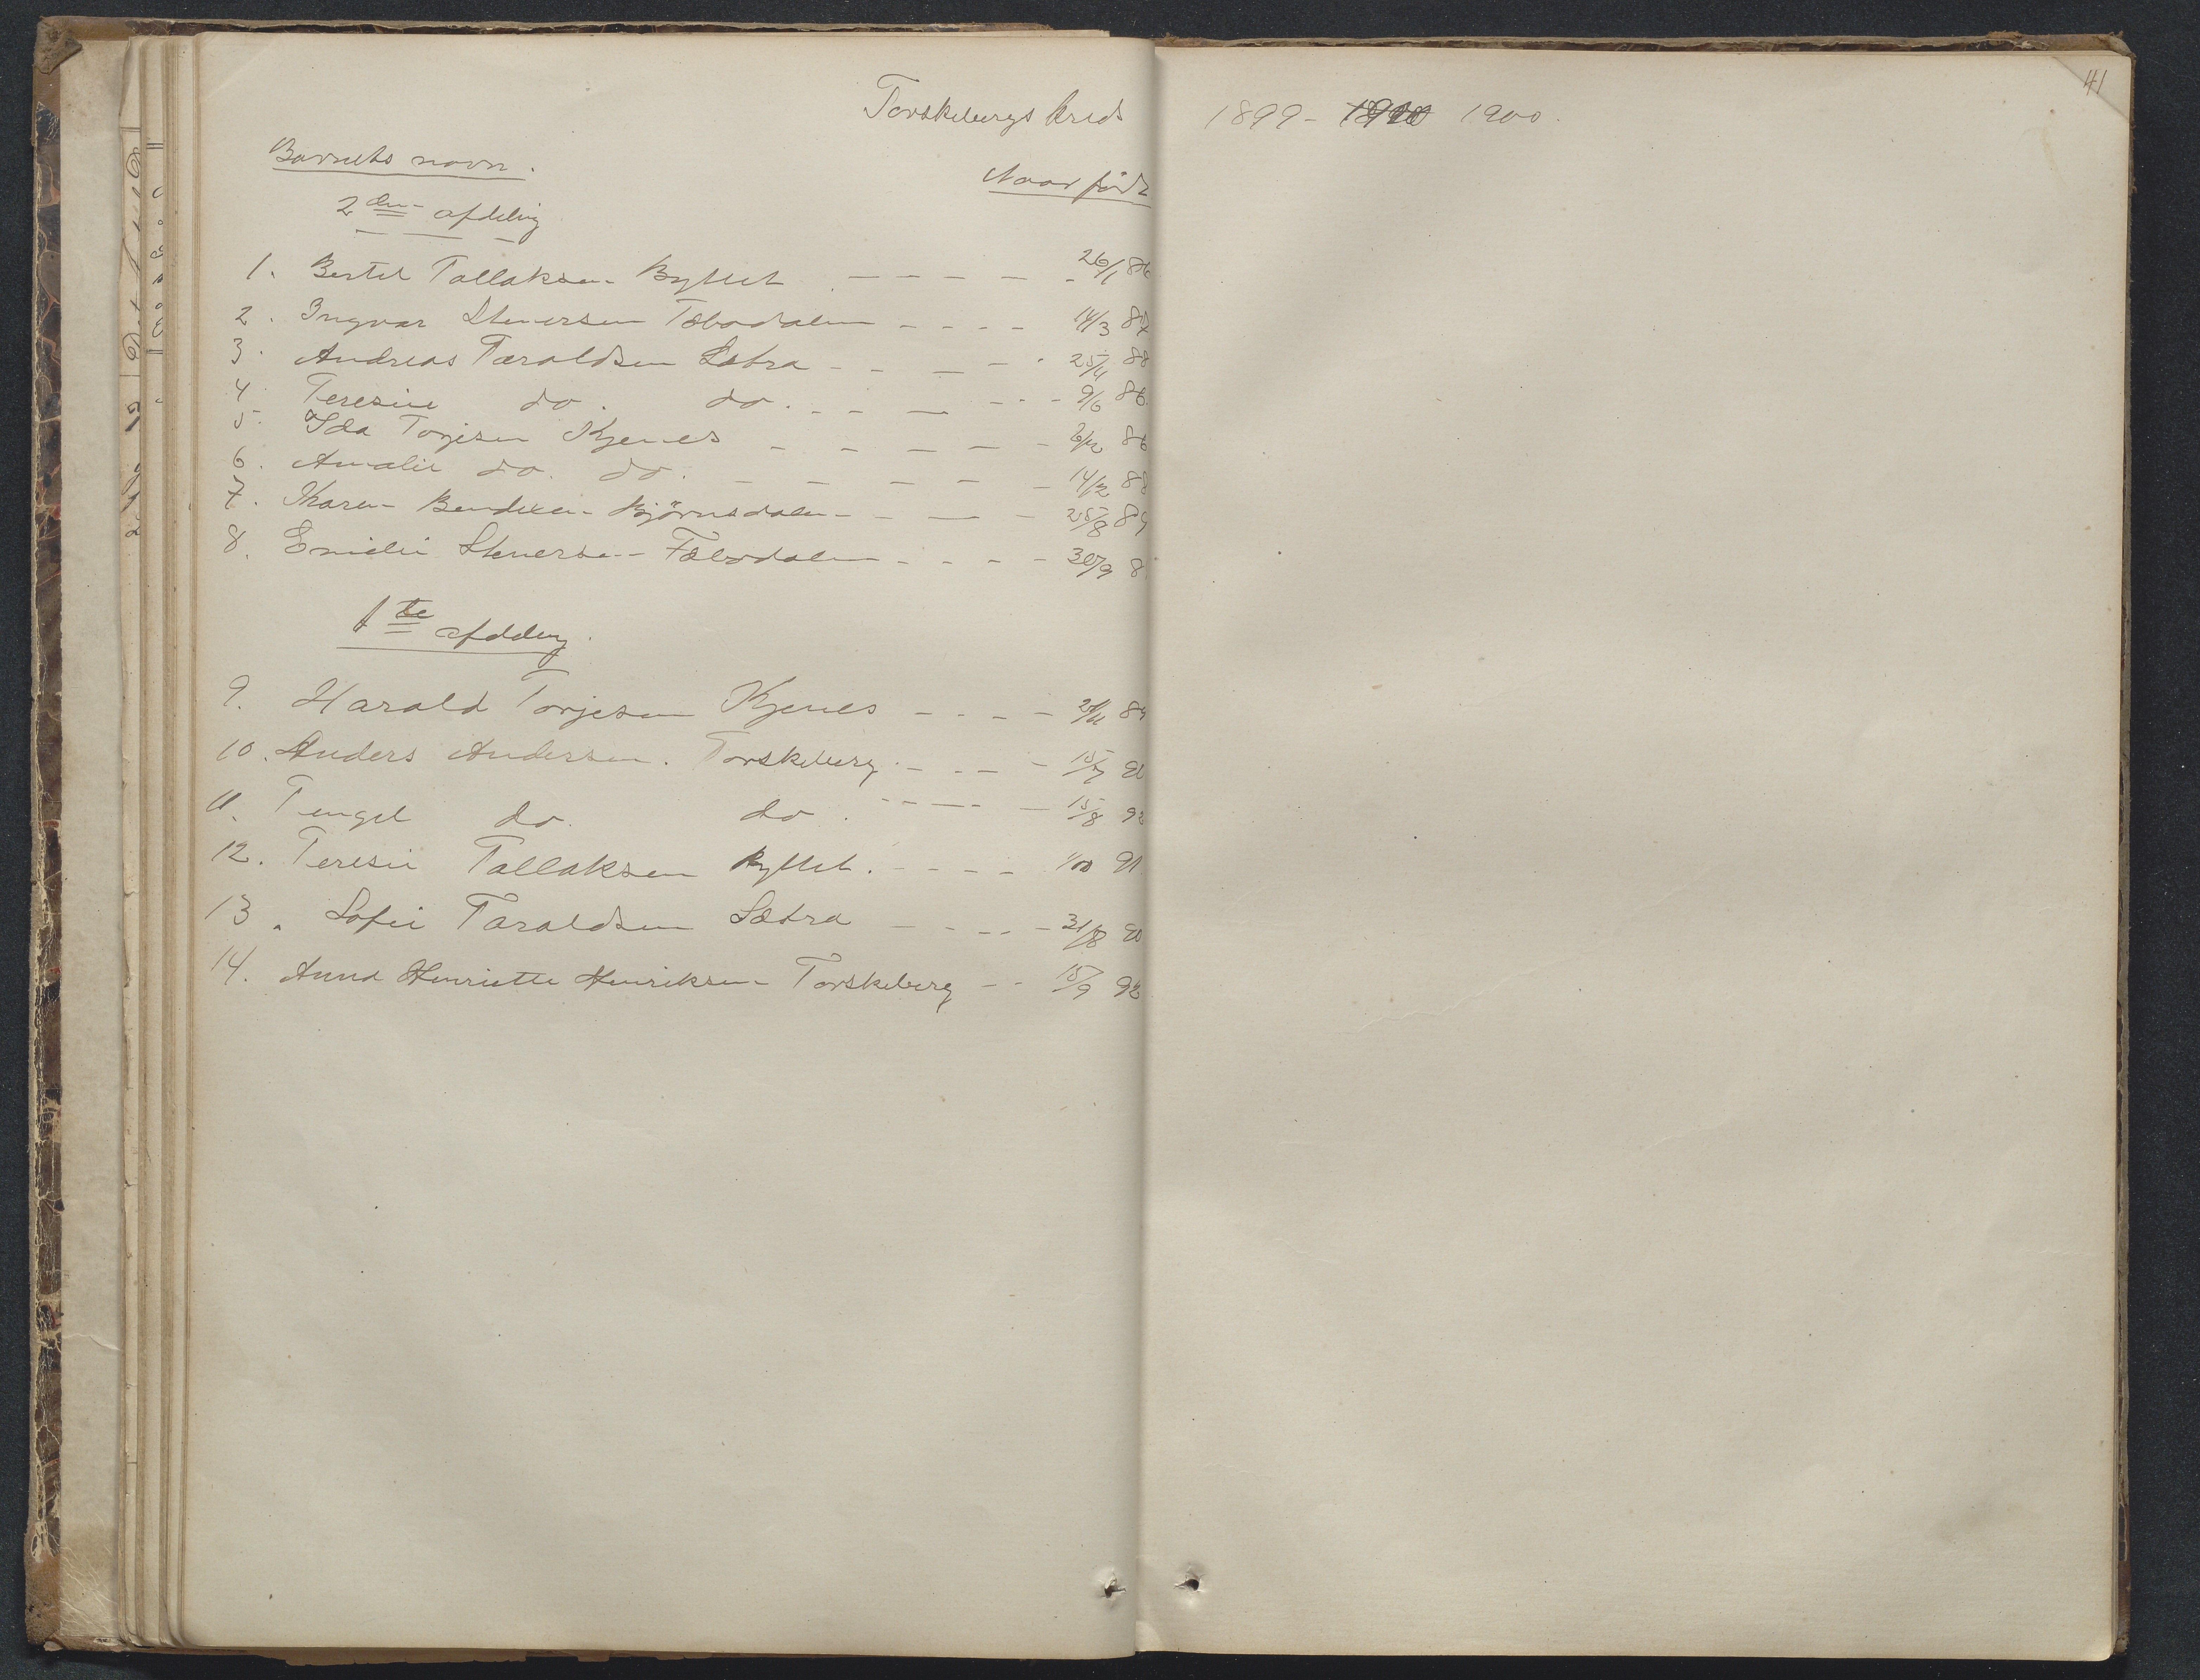 41
Torskebergs kreds 1899- 1900.
Barnets navn. Naar født
2den afdeling
1. Bertel Tallaksen Byttet - - - - - 26/1 86
2. Ingvar Stenersen Fæbodalen - - - - 14/3 87
3. Andreas Taraldsen Sætra - - - - - 25/4 88
4 Teresie do. do. - - - - - - 9/6 86
5. Ida Torjesen Kjenes - - - - - 86
6. Amalie do. do. - - - - - - 14/2 88
7. Karen Bendixen Bjørnsdalen - - - - 25/8 89
8. Emilie Stenersen Fæbodalen - - - - 30/9 8
1te afdeling
9. Harald Torjesen Kjenes - - - - 89
10. Anders Andersen. Torskeberg. - - - - 15/7 90
11. Tengel do. do. - - - - - 15/8 92
12. Teresie Tallaksen Byttet. - - - - 1/10 91
13. Sofie Taraldsen Sætra - - - - - 31/8 90
14. Anna Henriette Henriksen Torskeberg - - 15/9 92